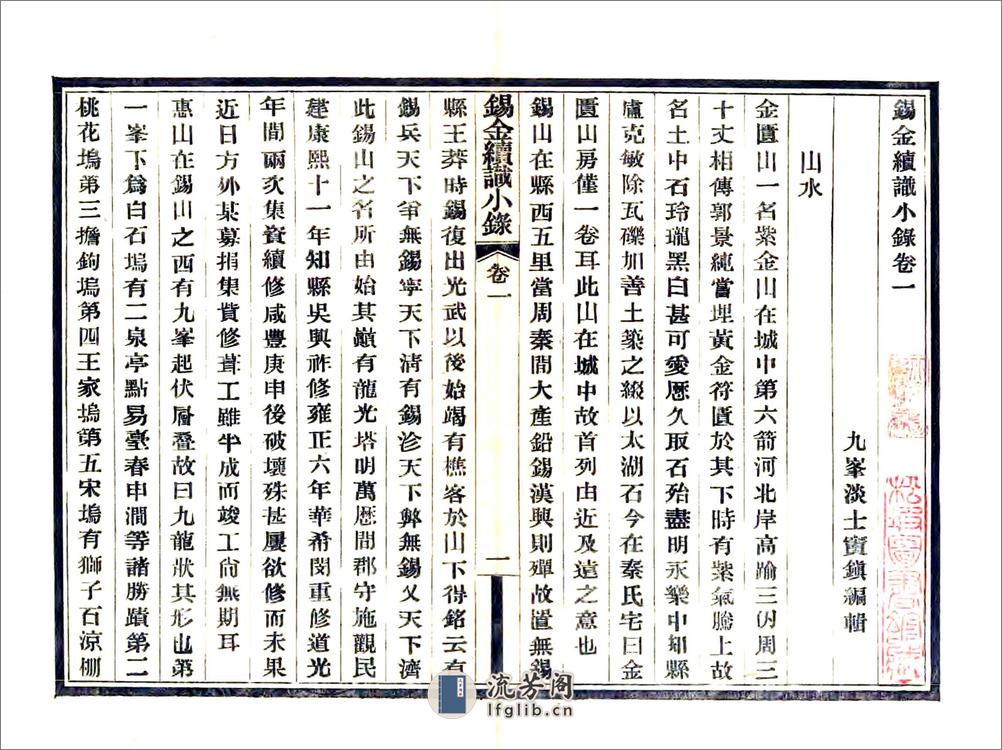 錫金續識小錄卷一
九峯淡士竇鎮編輯
山水
金匱山一名紫金山在城中第六箭河北岸高踰三仞周三
十丈相傳郭景純嘗埋黃金符匱於其下時有紫氣騰上故
名土中石玲瓏黑白甚可愛歷久取石殆盡明永樂中知縣
盧克敏除瓦礫加善土築之綴以太湖石今在秦氏宅曰金
匱山房僅一卷耳此山在城中故首列由近及遠之意也
錫山在縣西五里當周秦間大產鉛錫漢興則殫故置無錫
錫金續識小錄
卷一
一
縣王莽時錫復出光武以後始竭有樵客於山下得銘云有
錫兵天下爭無錫寧天下淸有錫沴天下弊無錫乂天下濟
此錫山之名所由始其巔有龍光塔明萬厯間郡守施觀民
建康熙十一年知縣吳興祚修雍正六年華希閔重修道光
年間兩次集資續修咸豐庚申後破壞殊甚屢欲修而未果
近日方外某募捐集貲修葺工雖半成而竣工尙無期耳
惠山在錫山之西有九峯起伏層疊故曰九龍狀其形也第
一峯下爲白石塢有二泉亭點易臺春申澗等諸勝蹟第二
桃花塢第三擔鉤塢第四王家塢第五宋塢有獅子石涼棚
流芳阁
lfglib.cn